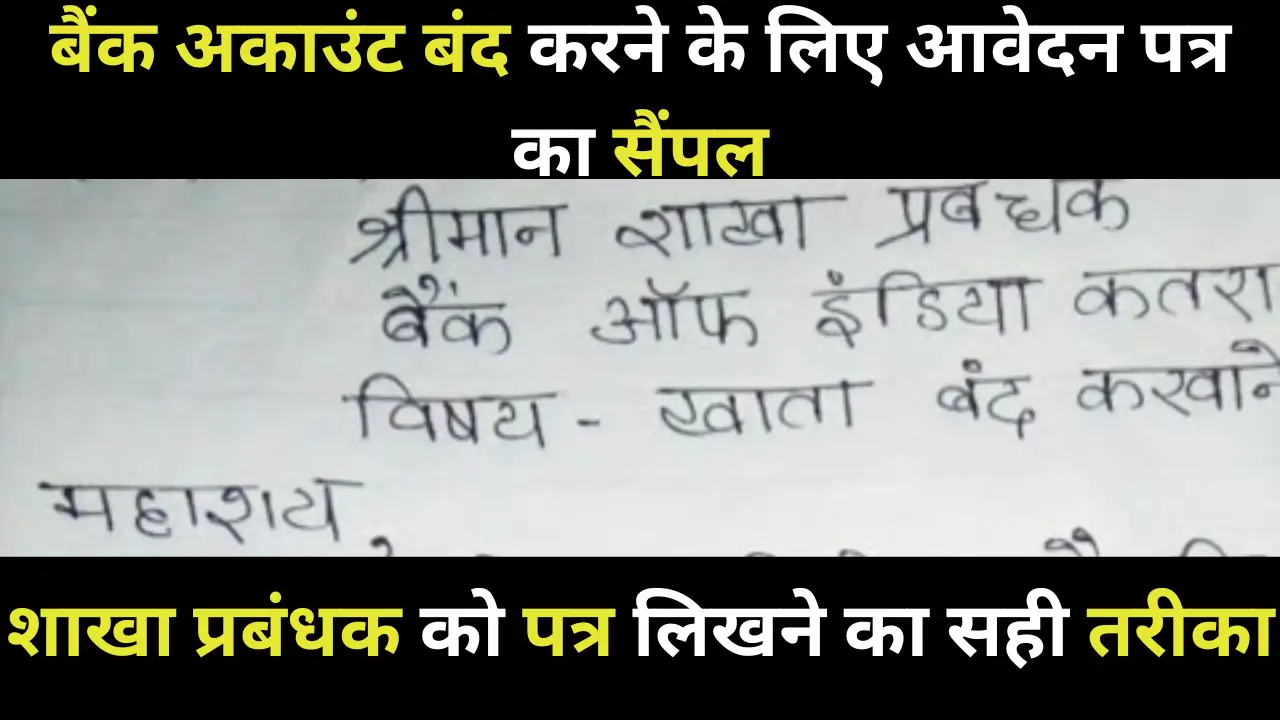 बैंक अकाउंट बंद करने के लिए आवेदन पत्र
का सैंपल
श्रीमान शाखा प्रबधक
बैंक ऑफ इंडिया कतरा
विषय - खाता बंद करवाने
महाशय
शाखा प्रबंधक को पत्र लिखने का सही तरीका